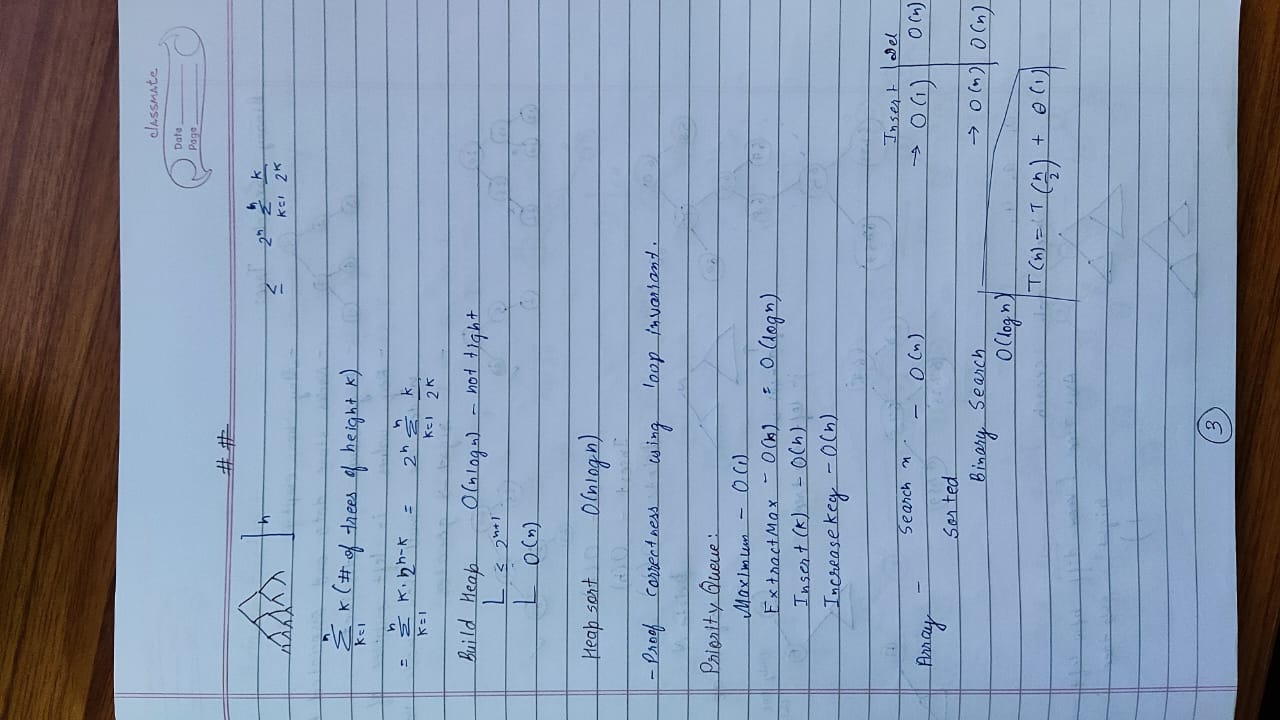 classmate
Date
Page
##
h
≤ 2^h Σ_{k=1}^{h} k/2^k
Σ_{k=1}^{h} k (# of trees of height k)
= Σ_{k=1}^{h} k·2^{h-k} = 2^h Σ_{k=1}^{h} k/2^k
Build Heap O(nlogn) - not tight
≤ 2^{h+1}
O(n)
Heap sort O(nlogn)
- Proof correctness using loop invariant.
Priority Queue:
Maximum - O(1)
ExtractMax - O(h) = O(logn)
Insert(k) - O(h)
Increasekey - O(h)
Insert | Del
Array - Search x - O(n) → O(1) | O(n)
Sorted
Binary Search → O(n) | O(n)
O(logn)
T(n) = T(n/2) + θ(1)
3